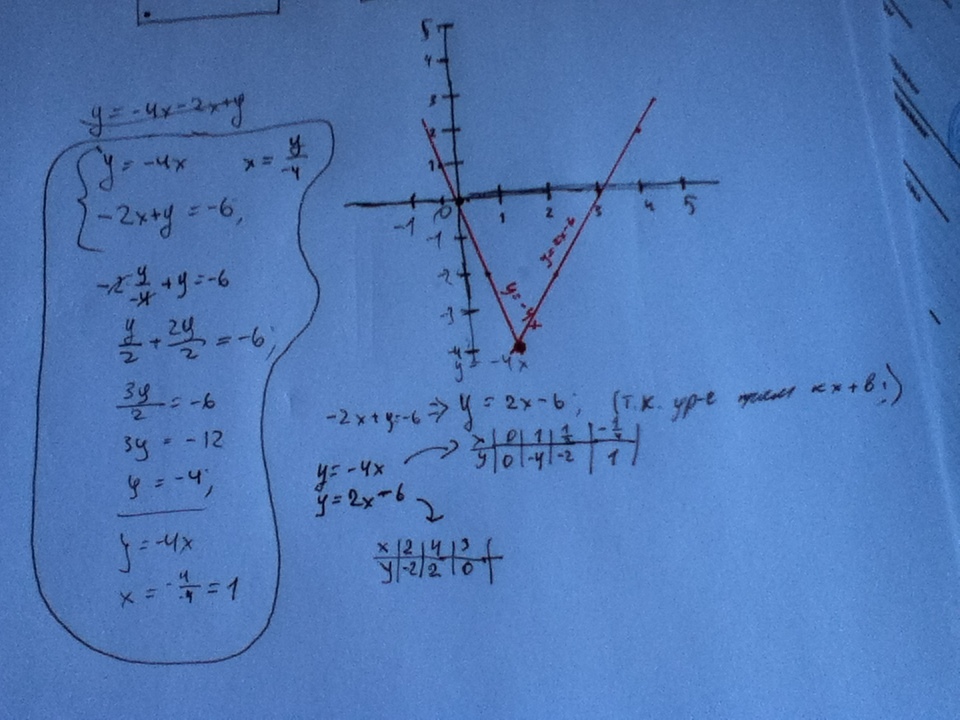 y = -4x-2x+y
y = -4x x = y/-4
-2x+y = -6;
-2 y/-4 + y = -6
y/2 + 2y/2 = -6;
3y/2 = -6
3y = -12
y = -4;
y = -4x
x = -4/-4 = 1
5
4
3
2
1
-1 0 1 2 3 4 5
-1
-2
-3
-4
y=2x-6
y=-4x
y = -4x
-2x+y=-6 => y = 2x-6; (т.к. ур-е прям кx+в;)
x | 0 | 1 | 1/2 | -1/4 |
y | 0 | -4 | -2 | 1 |
y = -4x
y = 2x-6
x | 2 | 4 | 3 |
y | -2 | 2 | 0 |